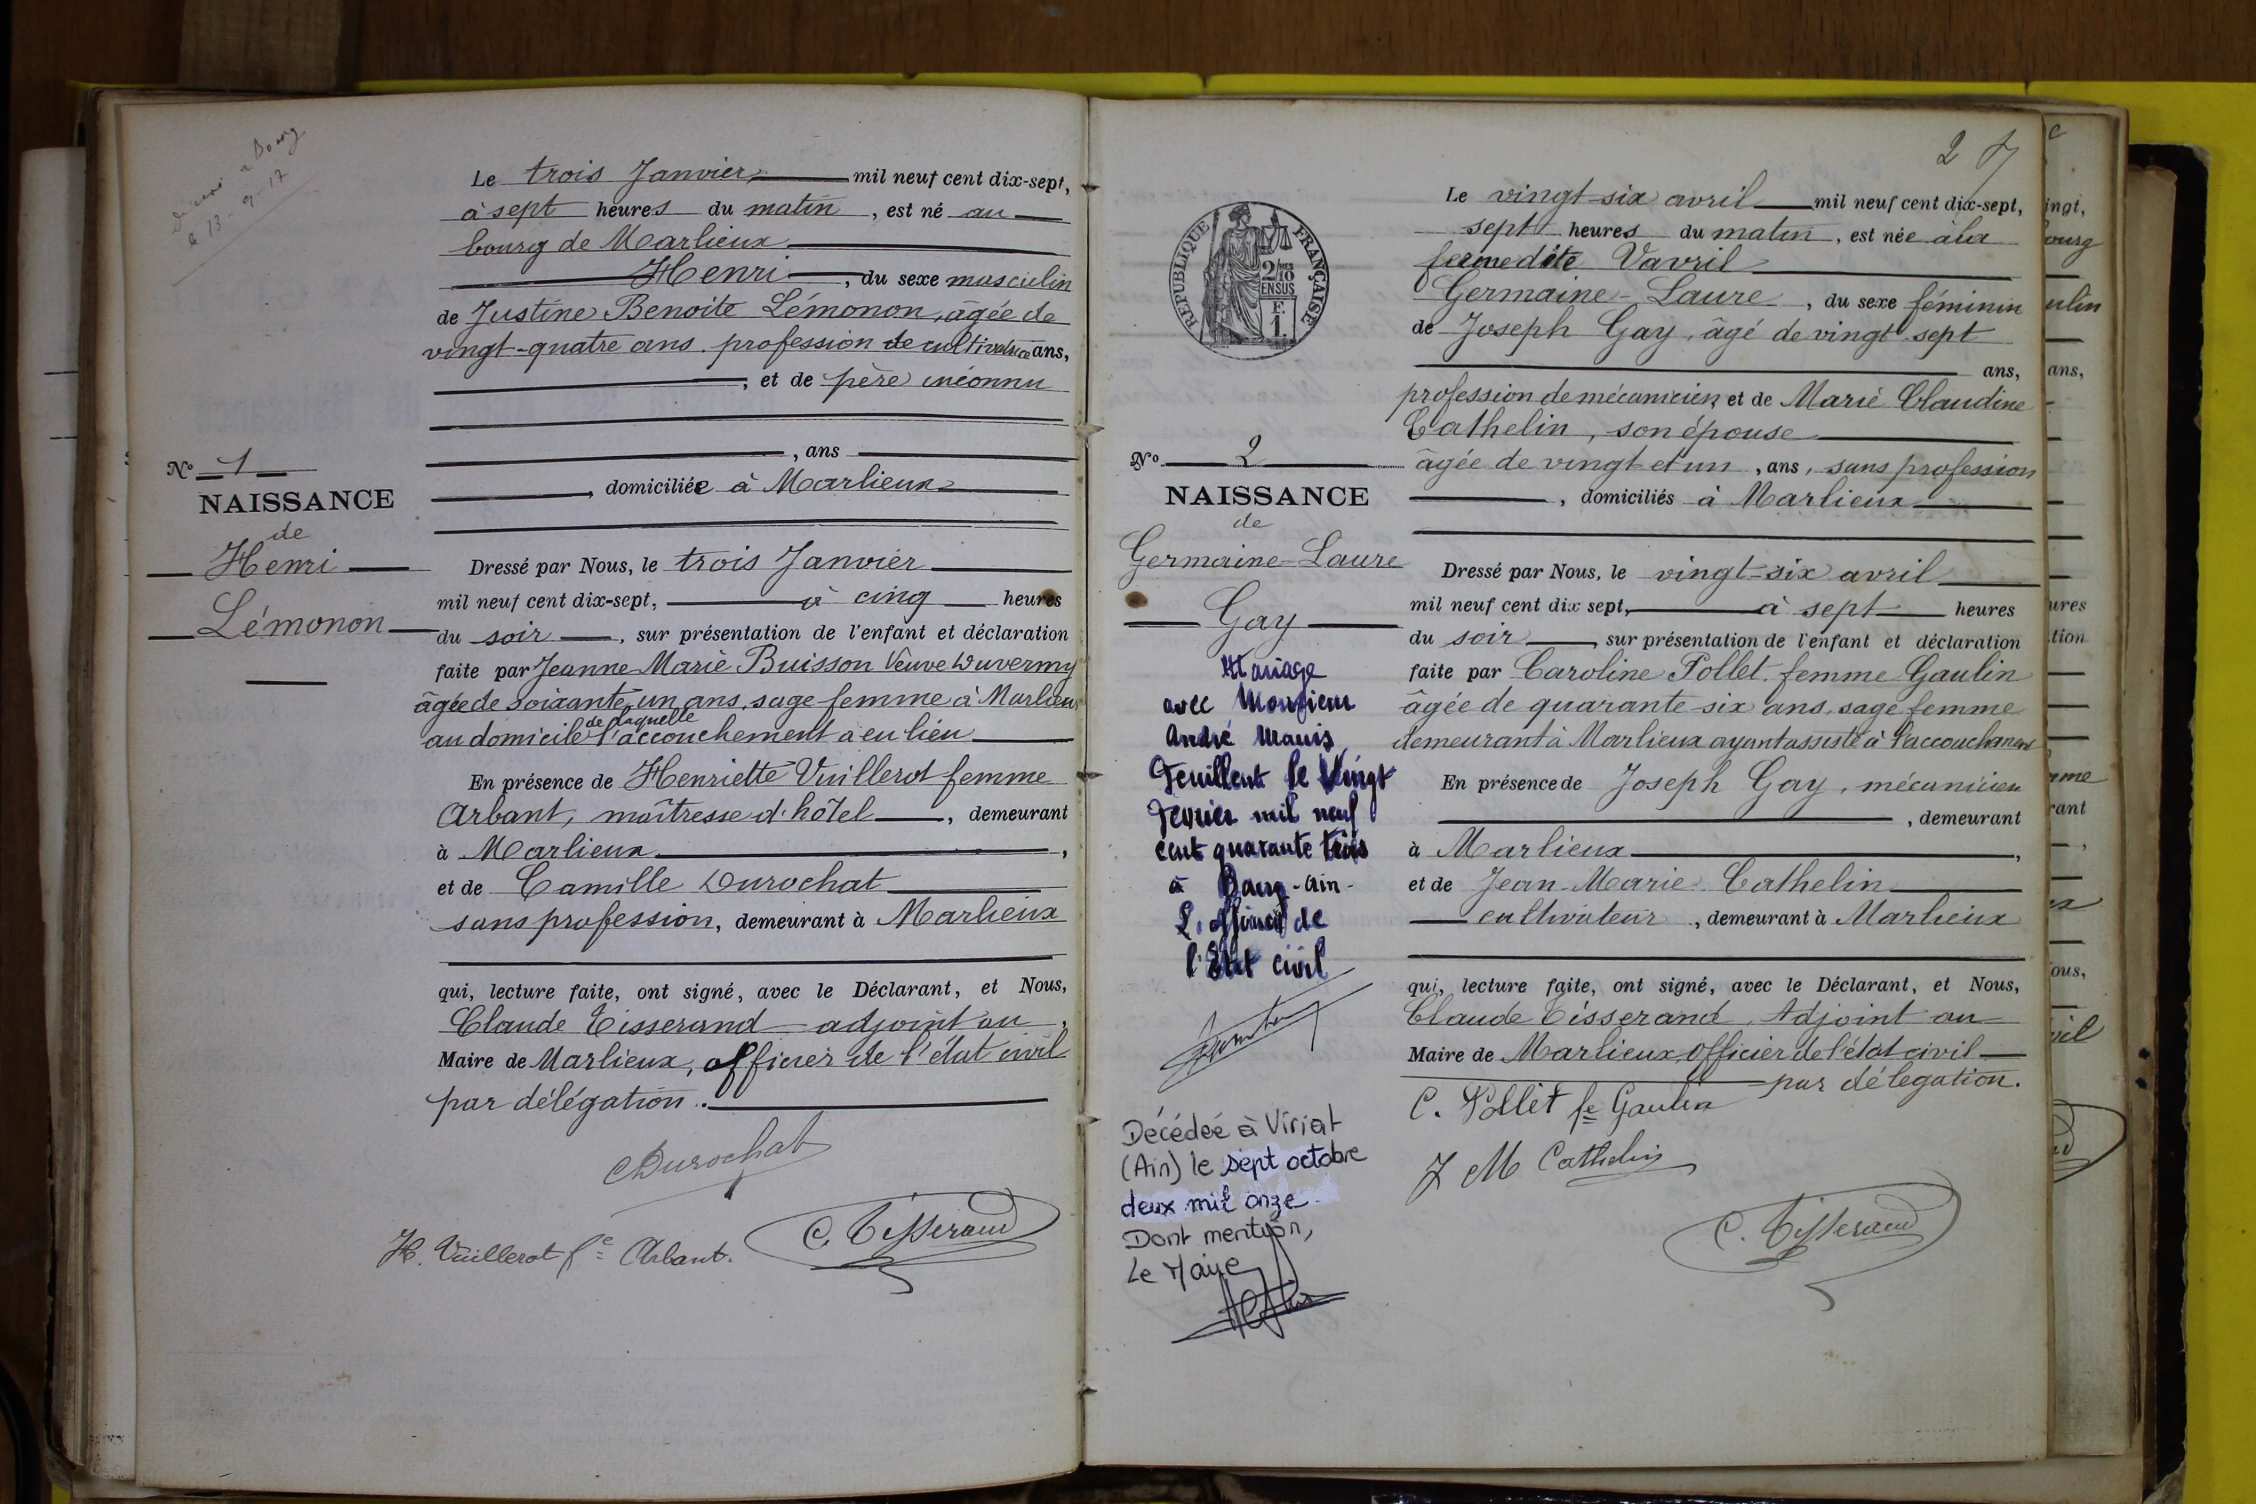 à Bourg
le 13-9-17
Le trois Janvier mil neuf cent dix-sept,
à sept heures du matin, est né au
bourg de Marlieux
Henri, du sexe masculin
de Justine Benoite Lémonon, âgée de
vingt-quatre ans. profession de cultivatrice ans,
, et de père inconnu
, ans
, domiciliée à Marlieux
Nº 1
NAISSANCE
de
Henri
Lémonon
Dressé par Nous, le trois Janvier
mil neuf cent dix-sept, à cinq heures
du soir, sur présentation de l'enfant et déclaration
faite par Jeanne Marie Buisson Veuve Duvermy
âgée de soixante un ans, sage femme à Marlieux
au domicile de laquelle l'accouchement a eu lieu
En présence de Henriette Vuillerot femme
Arbant, maîtresse d'hôtel, demeurant
à Marlieux,
et de Camille Durochat
sans profession, demeurant à Marlieux
qui, lecture faite, ont signé, avec le Déclarant, et Nous,
Claude Tisserand adjoint au,
Maire de Marlieux, officier de l'état civil
par délégation.
CDurochat
H. Vuillerot fe Arbant.
C. Tisserand
2
RÉPUBLIQUE FRANÇAISE
2/10
EN SUS
F.
1.
Le vingt-six avril mil neuf cent dix-sept,
sept heures du matin, est née à la
ferme dite Vavril
Germaine-Laure, du sexe féminin
de Joseph Gay, âgé de vingt sept
ans,
profession de mécanicien, et de Marie Claudine
Cathelin, son épouse
âgée de vingt et un, ans, sans profession
, domiciliés à Marlieux
Nº 2
NAISSANCE
de
Germaine-Laure
Gay
Mariage
avec Monsieur
André Manis
Feuillent le Vingt
Fevrier mil neuf
cent quarante trois
à Bourg-Ain-
L'officier de
l'Etat civil
Décédée à Viriat
(Ain) le sept octobre
deux mil onze.
Dont mention,
Le Maire
Dressé par Nous, le vingt-six avril
mil neuf cent dix sept, à sept heures
du soir, sur présentation de l'enfant et déclaration
faite par Caroline Pollet femme Gaulin
âgée de quarante-six ans, sage femme
demeurant à Marlieux ayant assisté à l'accouchement
En présence de Joseph Gay, mécanicien
, demeurant
à Marlieux,
et de Jean-Marie Cathelin
cultivateur, demeurant à Marlieux
qui, lecture faite, ont signé, avec le Déclarant, et Nous,
Claude Tisserand, Adjoint au
Maire de Marlieux, Officier de l'état civil
par délegation.
C. Pollet fe Gaulin
J M Cathelin
C. Tisserand